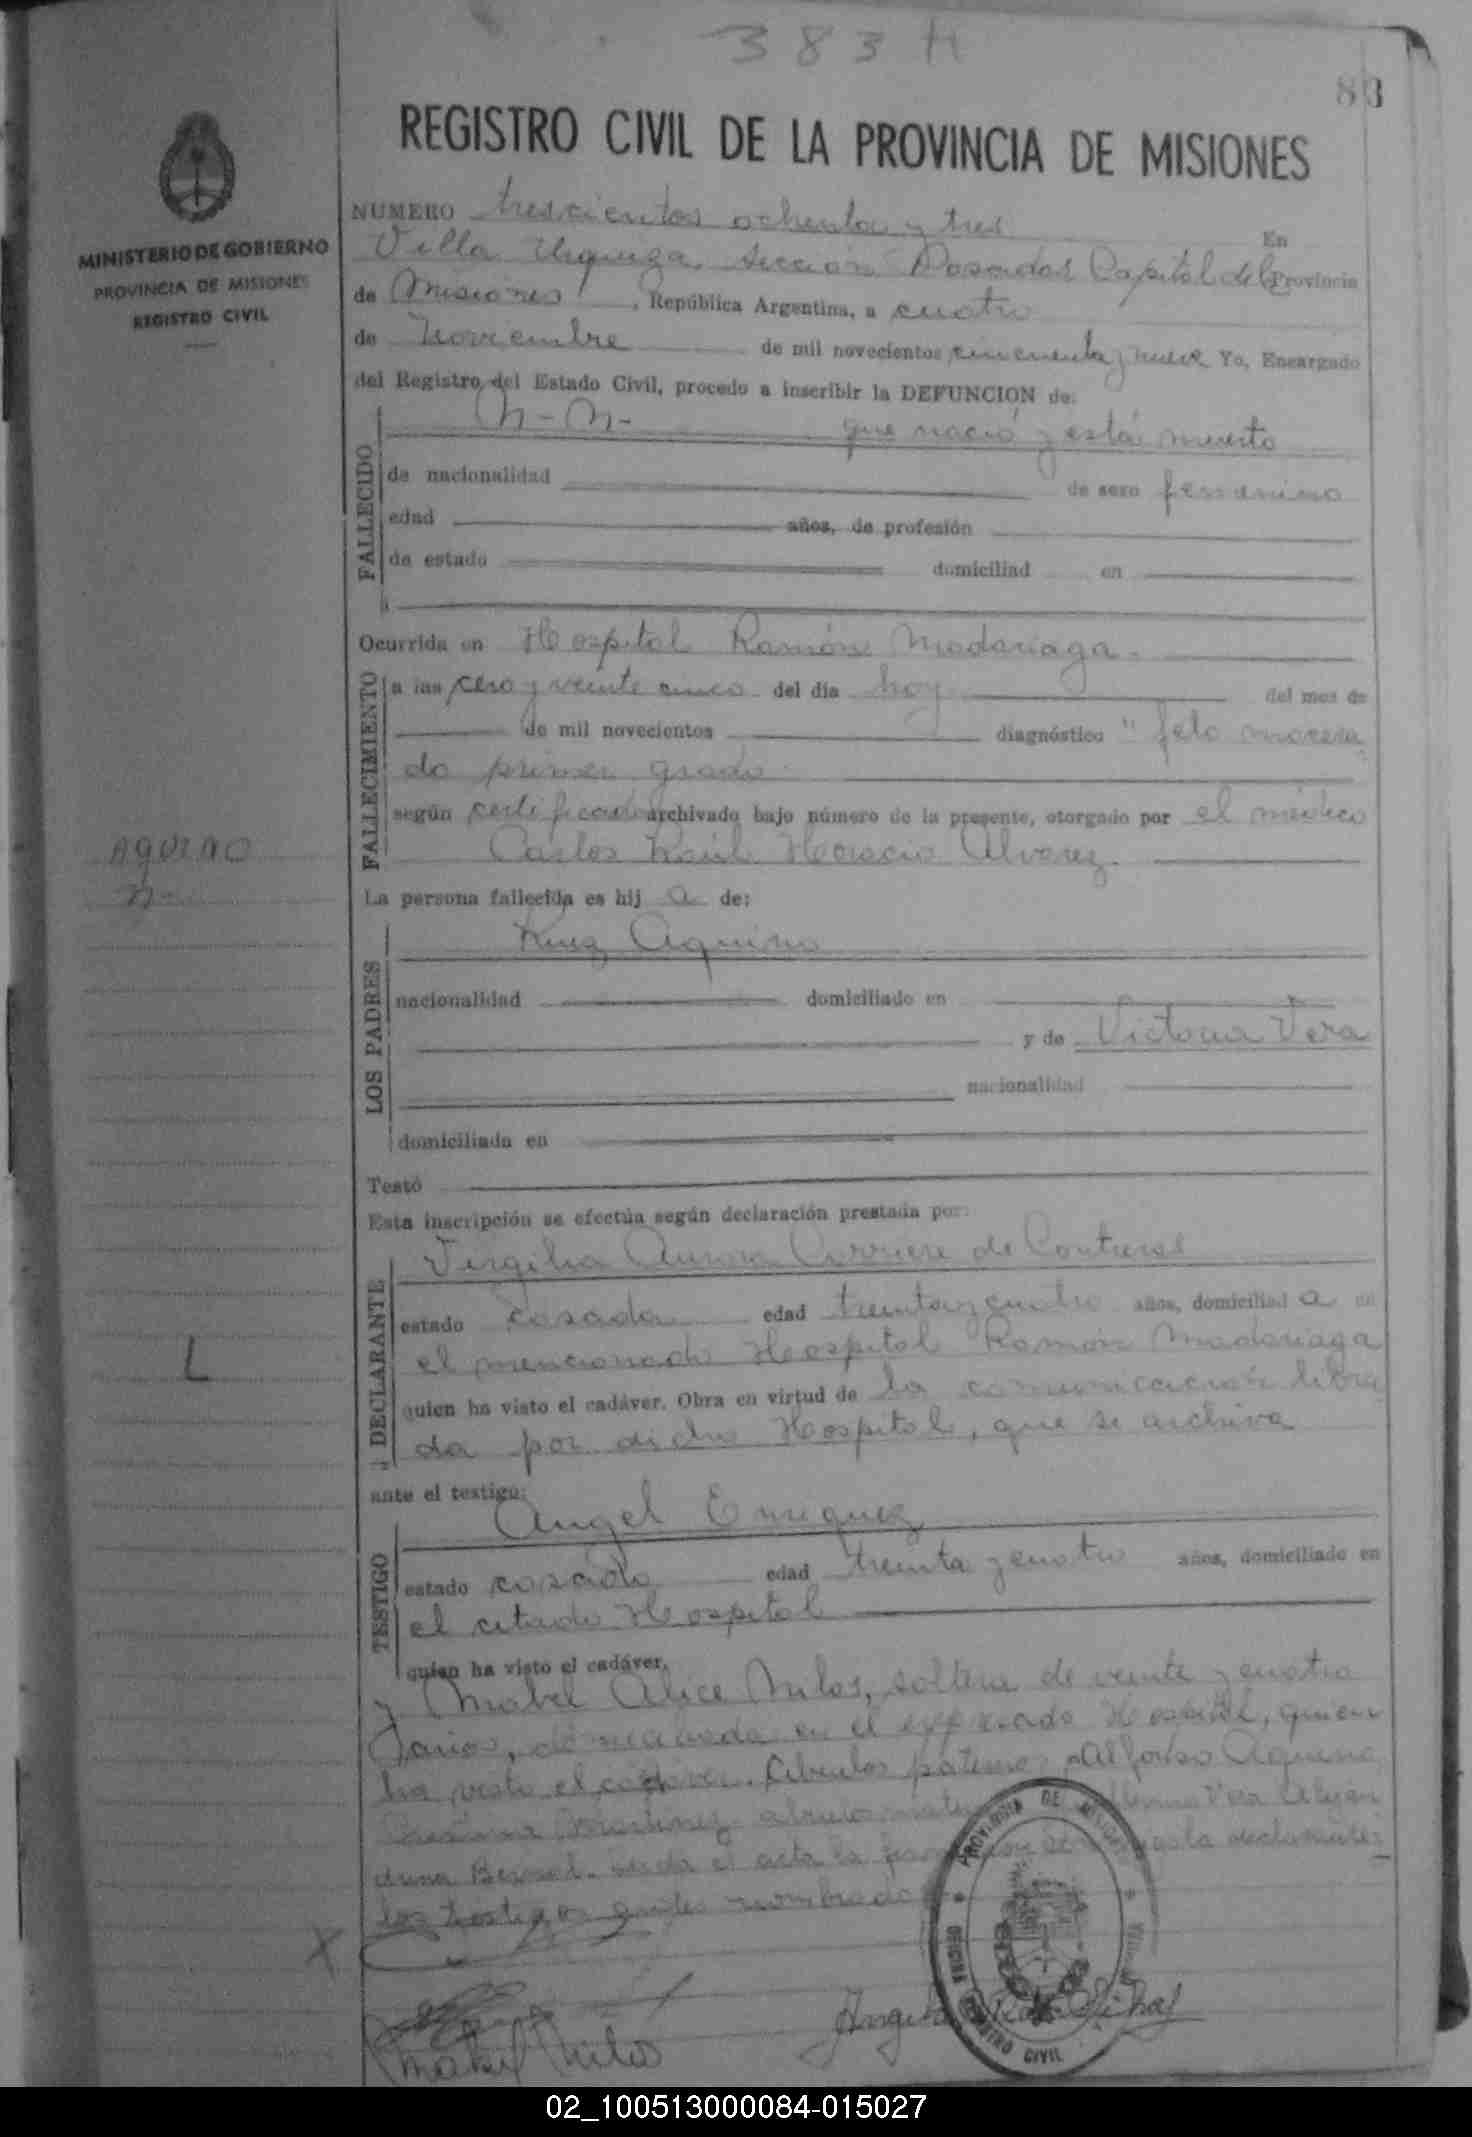 383 H
83
REGISTRO CIVIL DE LA PROVINCIA DE MISIONES
MINISTERIO DE GOBIERNO
PROVINCIA DE MISIONES
REGISTRO CIVIL
NUMERO trescientos ochenta y tres En
Villa Urquiza, sección Posadas Capital de la Provincia
de Misiones, República Argentina, a cuatro
de Noviembre de mil novecientos cincuenta y nueve Yo, Encargado
del Registro del Estado Civil, procedo a inscribir la DEFUNCION de:
FALLECIDO
N-N- que nació y está muerto
de nacionalidad de sexo femenino
edad años, de profesión
de estado domiciliad en
Ocurrida en Hospital Ramón Madariaga.
FALLECIMIENTO
a las cero y veinte cinco del día hoy del mes de
de mil novecientos diagnóstico "feto macera
do primer grado
según certificado archivado bajo número de la presente, otorgado por el médico
Carlos Raúl Horacio Alvarez.
AQUINO
N-
La persona fallecida es hij a de:
LOS PADRES
Ruiz Aquino
nacionalidad domiciliado en
y de Victoria Vera
nacionalidad
domiciliada en
Testó
Esta inscripción se efectúa según declaración prestada por:
DECLARANTE
Virgilia Aurora de Contreras
estado casada edad treinta y cuatro años, domiciliad a en
el mencionado Hospital Ramón Madariaga
quien ha visto el cadáver. Obra en virtud de la comunicación libra
da por dicho Hospital, que se archiva
L
ante el testigo:
TESTIGO
Angel Enriquez
estado casado edad treinta y cuatro años, domiciliado en
el citado Hospital
quien ha visto el cadáver,
y Mabel Alice Milos, soltera de veinte y cuatro
años, domiciliada en el expresado Hospital, quien
ha visto el cadáver. Abuelos paternos Alfonso Aquino
Martinez abuelos maternos Vera Alejan
drina Bernal. Leída el acta la firman con la declarante
los testigos antes nombrados
X
Mabel Milos
PROVINCIA DE MISIONES
OFICINA REGISTRO CIVIL
02_100513000084-015027